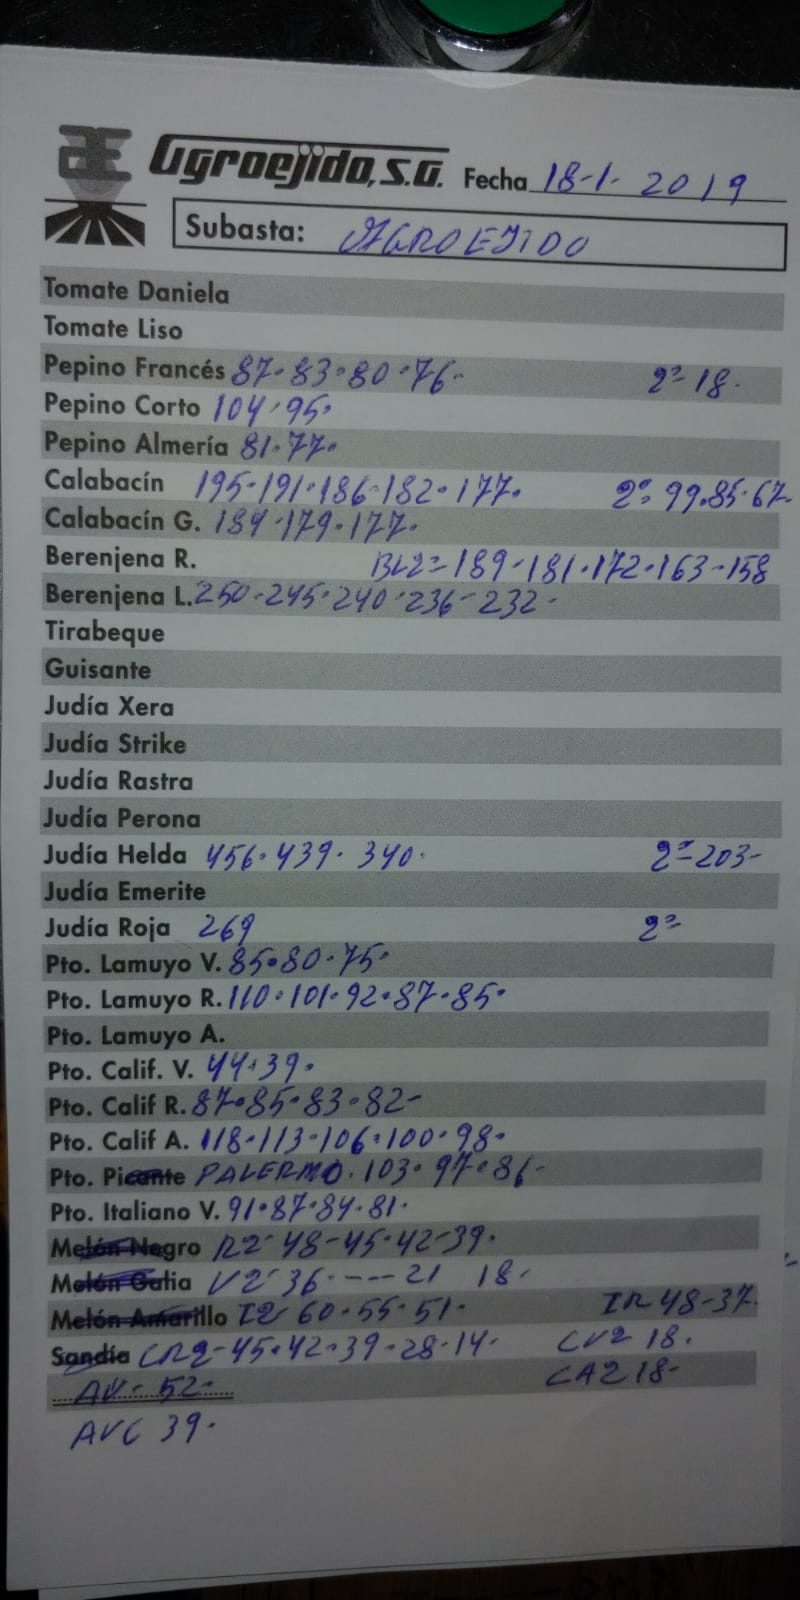 AE Agroejido, S.A. Fecha 18-1-2019
Subasta: AGROEJIDO
Tomate Daniela
Tomate Liso
Pepino Francés 87-83-80-76- 2ª-18.
Pepino Corto 104-95.
Pepino Almería 81-77.
Calabacín 195-191-186-182-177. 2ª: 99.85-67-
Calabacín G. 184-179-177.
Berenjena R. BL2=189-181-172-163-158
Berenjena L. 250-245-240-236-232-
Tirabeque
Guisante
Judía Xera
Judía Strike
Judía Rastra
Judía Perona
Judía Helda 456-439-340. 2ª-203-
Judía Emerite
Judía Roja 269 2ª-
Pto. Lamuyo V. 85-80-75.
Pto. Lamuyo R. 110-101-92-87-85.
Pto. Lamuyo A.
Pto. Calif. V. 44-39.
Pto. Calif R. 87-85-83-82-
Pto. Calif A. 118-113-106-100-98.
Pto. Picante PALERMO. 103-97-86-
Pto. Italiano V. 91-87-84-81.
Melón Negro R2 48-45-42-39.
Melón Galia V2 36.---21 18.
Melón Amarillo I2 60-55-51. IR 48-37.
Sandía CR2-45-42-39-28-14- CV2 18.
AV- 52- CA2 18-
AVC 39.